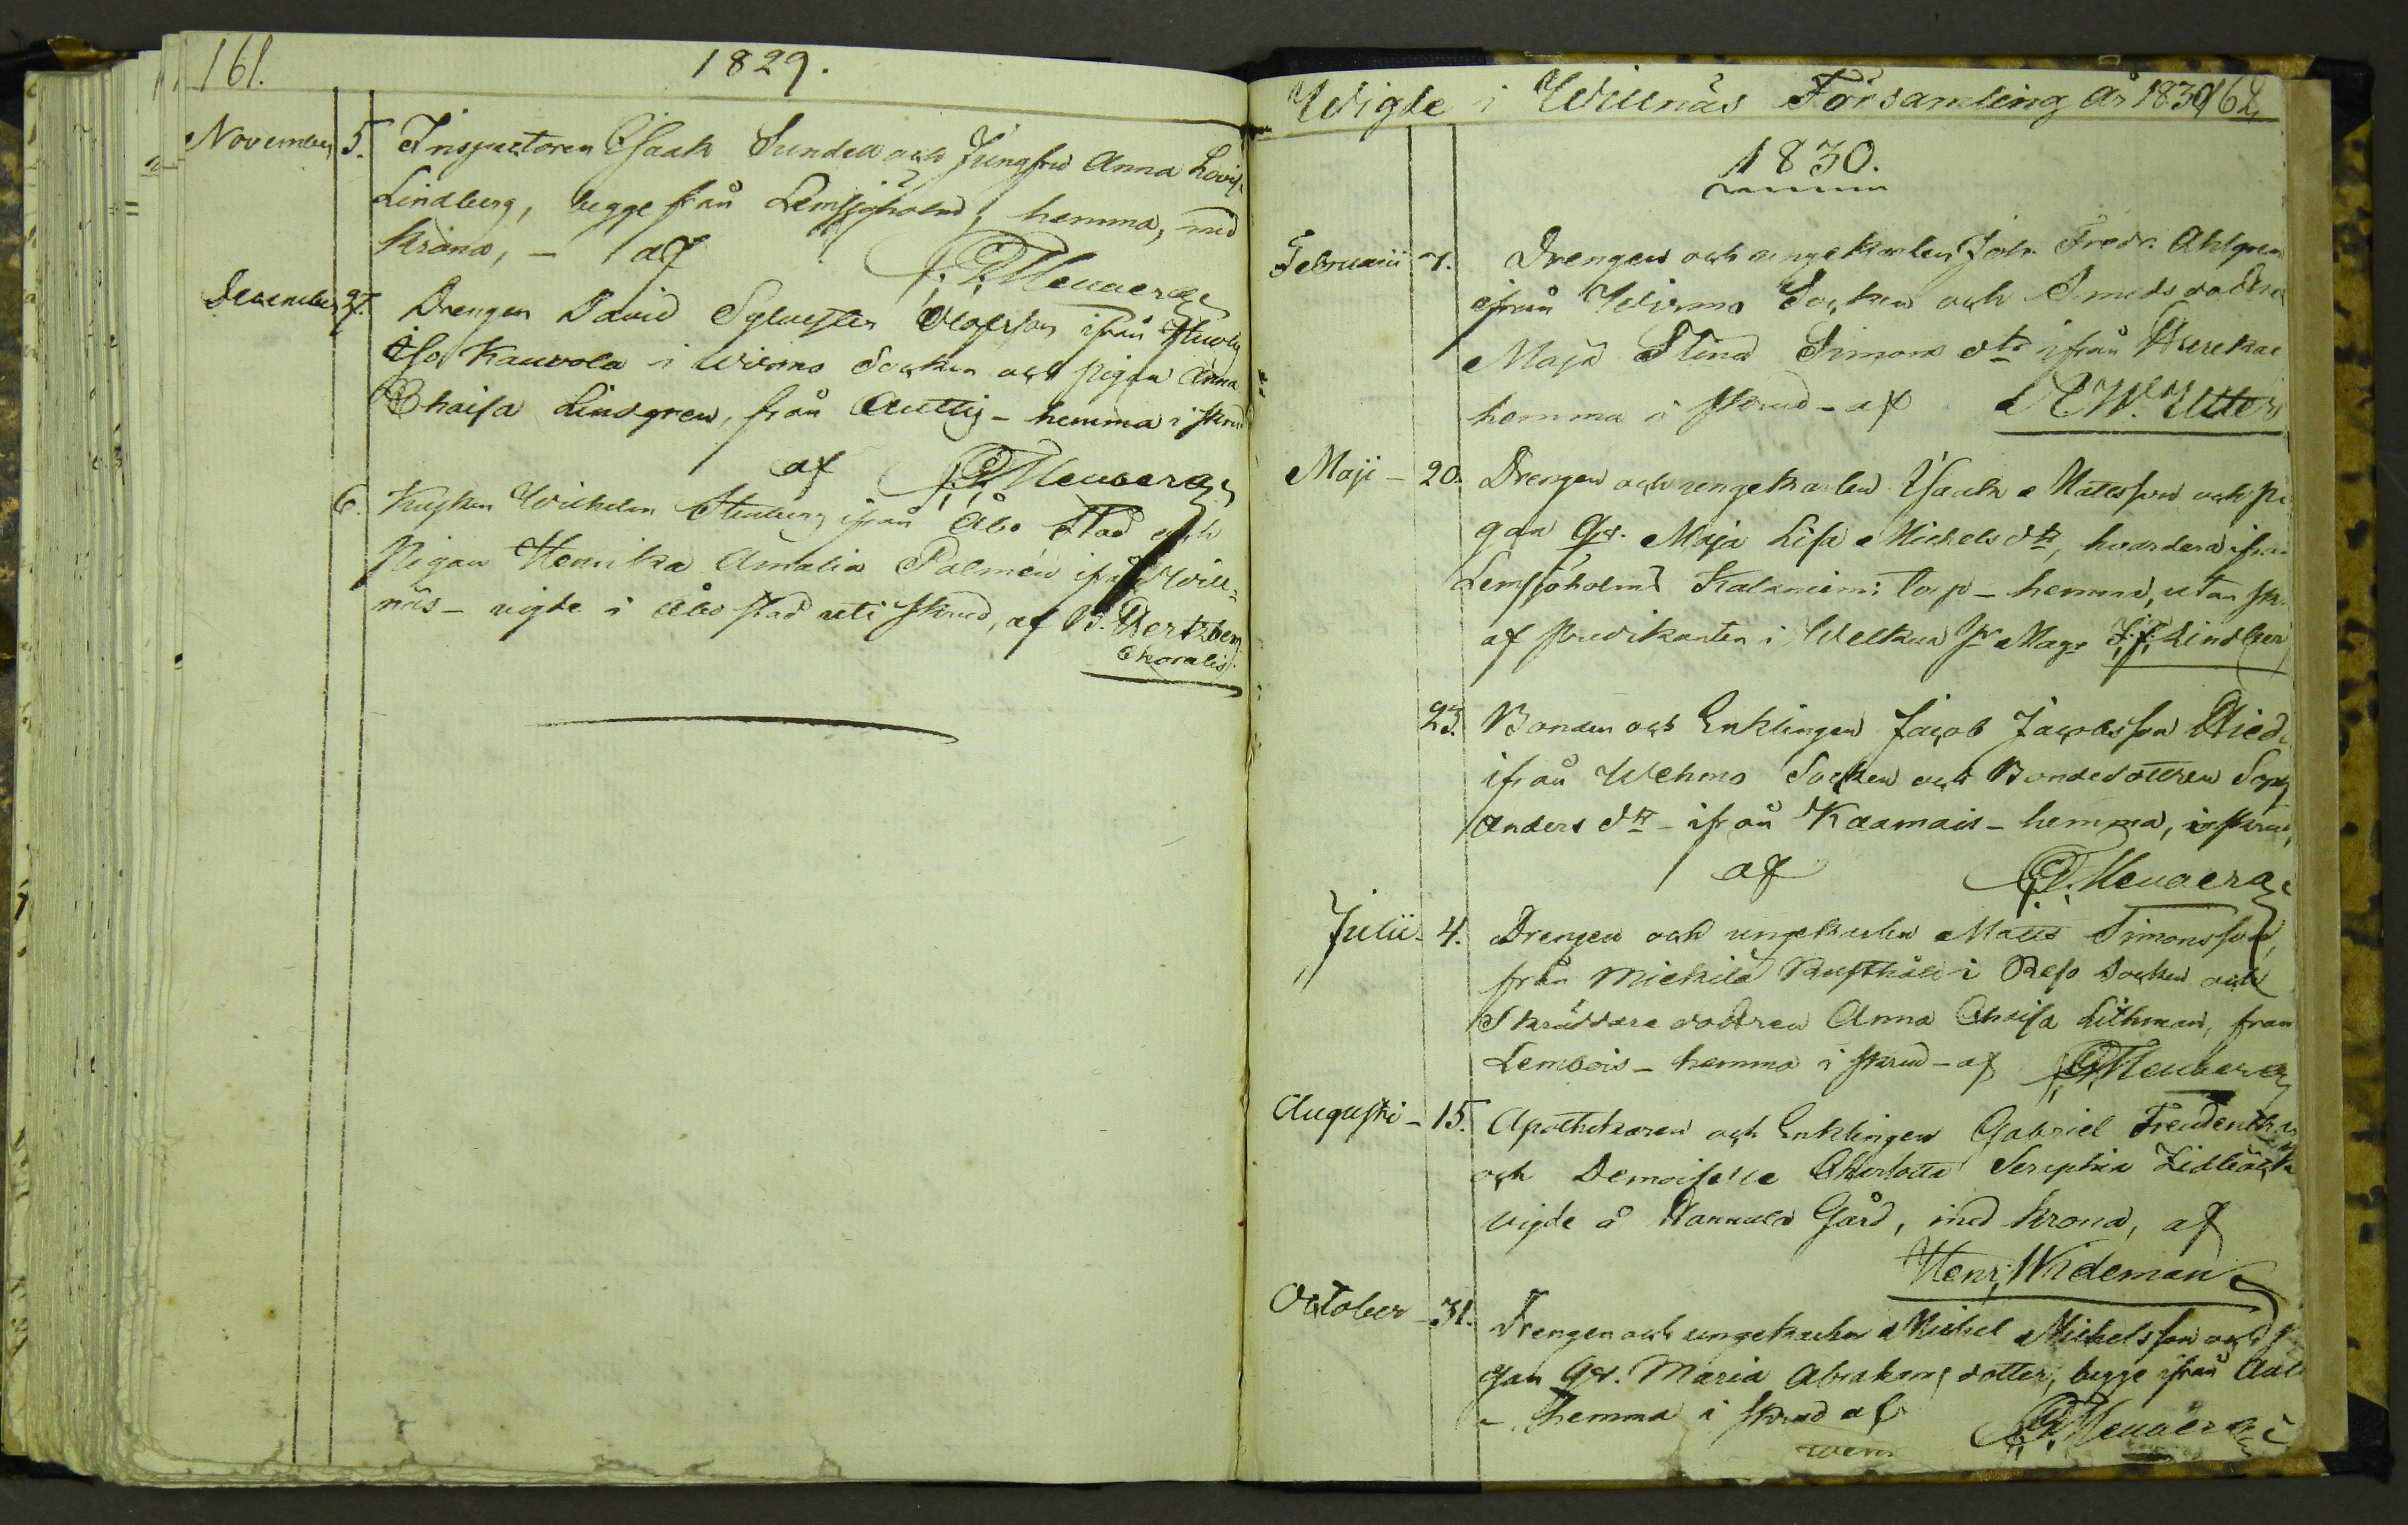 161.
1829.
November 5. Inspectoren Isaak Sundell och Jungfru Anna Lovisa
Lindberg, begge från Lemsjöholm, hemma, med
krona, - af
December 27. Drengen David Sylvester Olofsson ifrån
Iso Kauvola i Wirmo Socken och pigan Anna
Chaisa Lindgren, från Auttis - hemma i skrud
af
6. Kusken Wilhelm Stenberg ifrån Åbo Stad och
Pigan Henrika Amalia Palmén ifrån Will-
näs - vigde i Åbo stad uti skrud, af B. Hertzberg
Choralis.
Wigde i Willnäs Församling År 1830 162.
1830.
Februarii 7. Drengen och ungekarlen Joh. Fredr. Ahlgren
ifrån Wirmo Socken och Smedsdottren
Maja Stina Simons dtr ifrån
hemma i skrud - af
Maji - 20. Drengen och ungekarlen Isaak Matsson och pi
gan Qv. Maja Lisa Michels dtr, hvardera ifrån
Lemsjöholms Kalaniemi torp - hemma, utan
af Predikanten i Welkua Hr Mag. J. F. Lindberg
23. Bonden och Enklingen Jacob Jacobsson
ifrån Wehmo Socken och Bondedottren
Anders dtr - ifrån Kaamais - hemma, i skrud,
af
Julii - 4. Drengen och ungekarlen Matts Simonsson,
från Mickilä Rusthåll i Reso Socken och
Skräddaredottren Anna Chaisa Lithman, från
Lembois - hemma i skrud - af
Augusti - 15. Apothekaren och Enklingen Gabriel
och Demoiselle Charlotta Seraphia Lidbäck
vigde å Hannula Gård, med krona, af
Henr. Wideman
October - 31. Drengen och ungekarlen Michel Michelsson och
gan Qv. Maria Abrahams dotter, begge ifrån
- hemma i skrud af